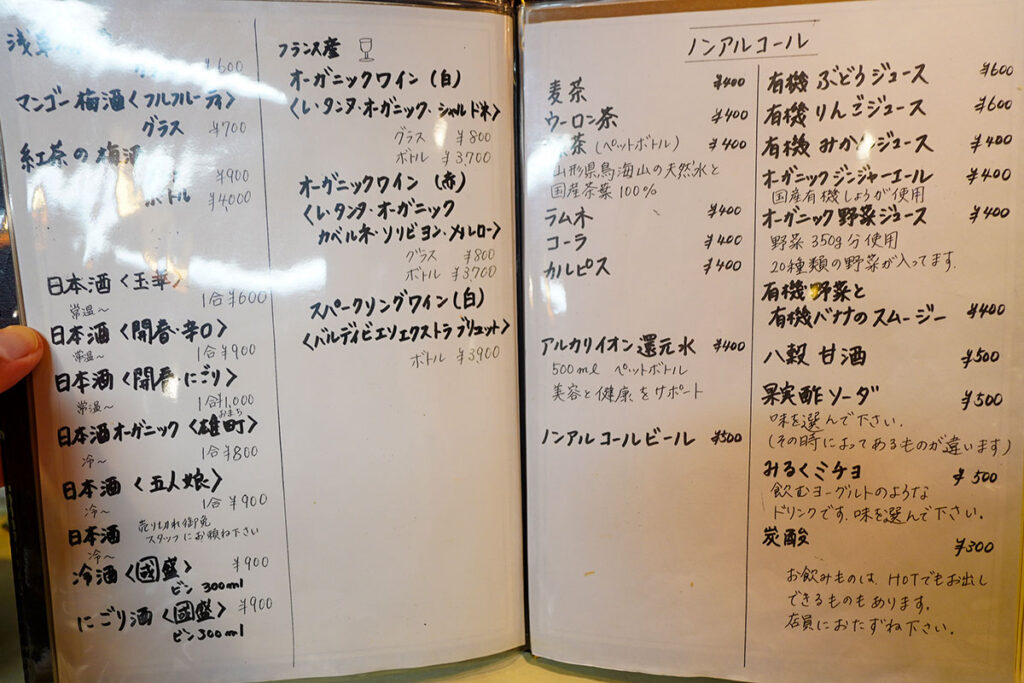 浅草
¥600
マンゴー梅酒〈フルフルーティ〉
グラス ¥700
紅茶の梅酒
¥900
ボトル ¥4000
日本酒〈玉華〉
常温～ 1合¥600
日本酒〈開春・辛口〉
常温～ 1合¥900
日本酒〈開春・にごり〉
常温～ 1合¥1,000
おまち
日本酒オーガニック〈雄町〉
冷～ 1合¥800
日本酒〈五人娘〉
冷～ 1合¥900
日本酒 売り切れ御免
冷～ スタッフにお尋ね下さい
冷酒〈國盛〉 ¥900
ビン 300ml
にごり酒〈國盛〉 ¥900
ビン 300ml
フランス産
オーガニックワイン(白)
〈レ・タンヌ・オーガニック・シャルドネ〉
グラス ¥800
ボトル ¥3,700
オーガニックワイン(赤)
〈レ・タンヌ・オーガニック
カベルネ・ソリビヨン・メルロー〉
グラス ¥800
ボトル ¥3,700
スパークリングワイン(白)
〈バルディビエソエクストラブリュット〉
ボトル ¥3,900
ノンアルコール
麦茶 ¥400
ウーロン茶 ¥400
茶(ペットボトル) ¥400
山形県鳥海山の天然水と
国産茶葉100%
ラムネ ¥400
コーラ ¥400
カルピス ¥400
アルカリイオン還元水 ¥400
500ml ペットボトル
美容と健康をサポート
ノンアルコールビール ¥500
有機ぶどうジュース ¥600
有機りんごジュース ¥600
有機みかんジュース ¥400
オーガニックジンジャーエール ¥400
国産有機しょうが使用
オーガニック野菜ジュース ¥400
野菜350g分使用
20種類の野菜が入ってます.
有機野菜と
有機バナナのスムージー ¥400
八穀甘酒 ¥500
果実酢ソーダ ¥500
味を選んで下さい.
(その時によってあるものが違います)
みるくミチョ ¥500
飲むヨーグルトのような
ドリンクです.味を選んで下さい。
炭酸 ¥300
お飲みものは、HOTでもお出し
できるものもあります。
店員におたずね下さい。